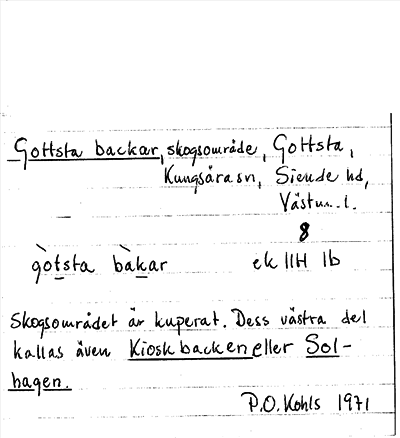 Gottsta backar, skogsområde, Gottsta,
Kungsåra sn, Siende hd,
Västm. l.
8
gòtsta bàkar ek 11H 1b
Skogsområdet är kuperat. Dess västra del
kallas även Kioskbacken eller Sol-
hagen.
P.O. Kohls 1971